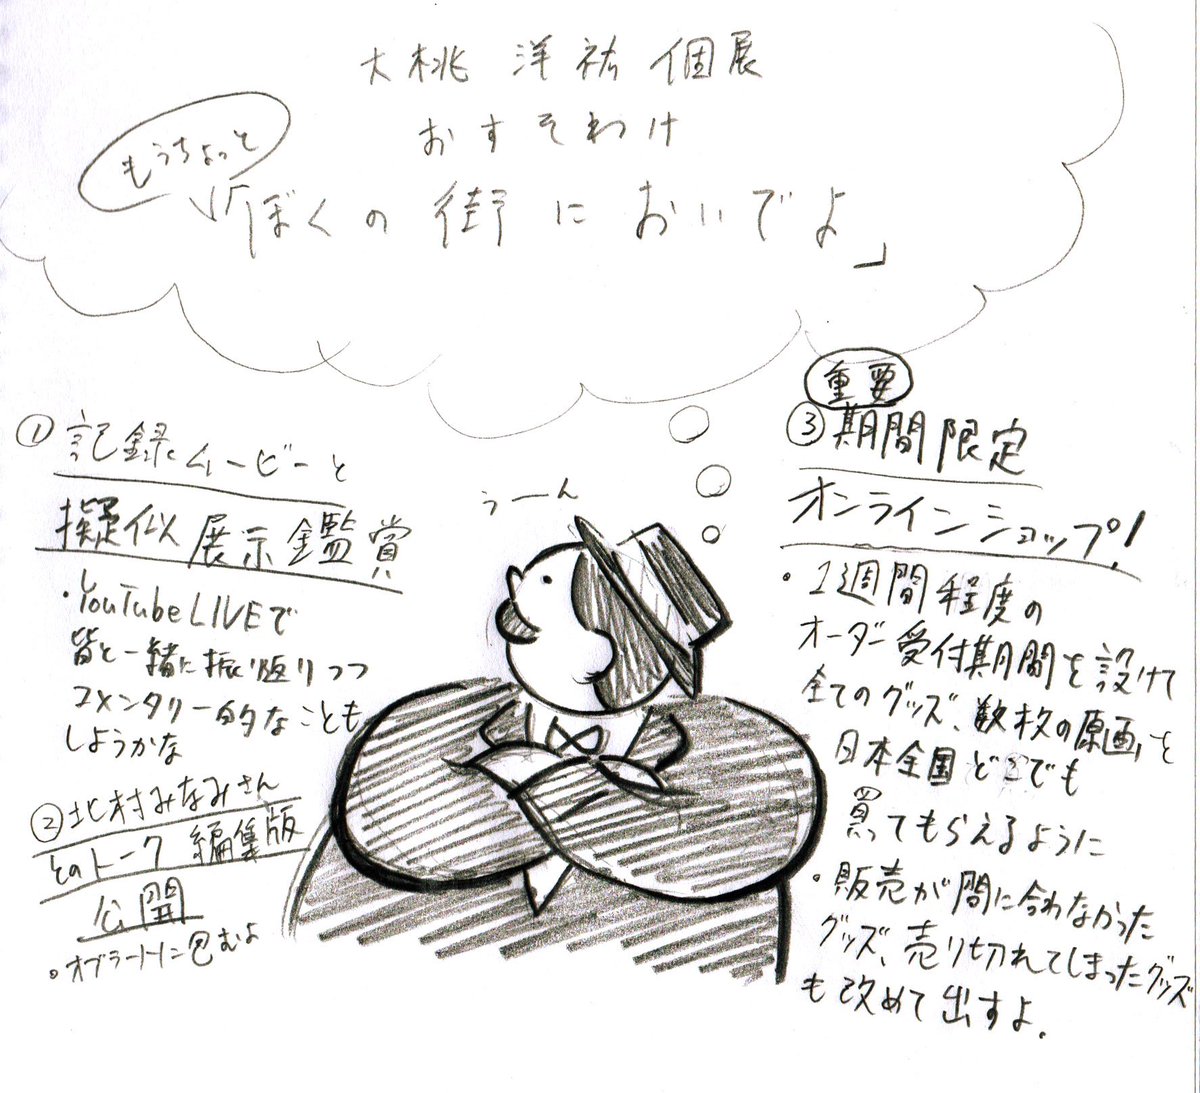 大桃 洋祐 個展
おすそわけ
もうちょっと
「ぼくの街においでよ」
① 記録ムービーと
擬似展示鑑賞
・YouTube LIVEで
皆と一緒に振り返りつつ
コメンタリー的なことも
しようかな
② 北村みなみさん
とのトーク編集版
公開
・オブラートに包むよ
うーん
重要
③ 期間限定
オンラインショップ!
・1週間程度の
オーダー受付期間を設けて
全てのグッズ、数枚の原画を
日本全国どこでも
買ってもらえるように
・販売が間に合わなかった
グッズ、売り切れてしまったグッズ
も改めて出すよ.